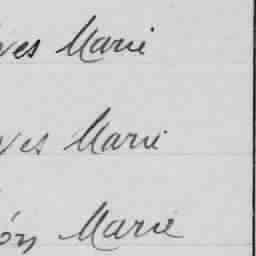 ves Marie
ves Marie
ón Marie